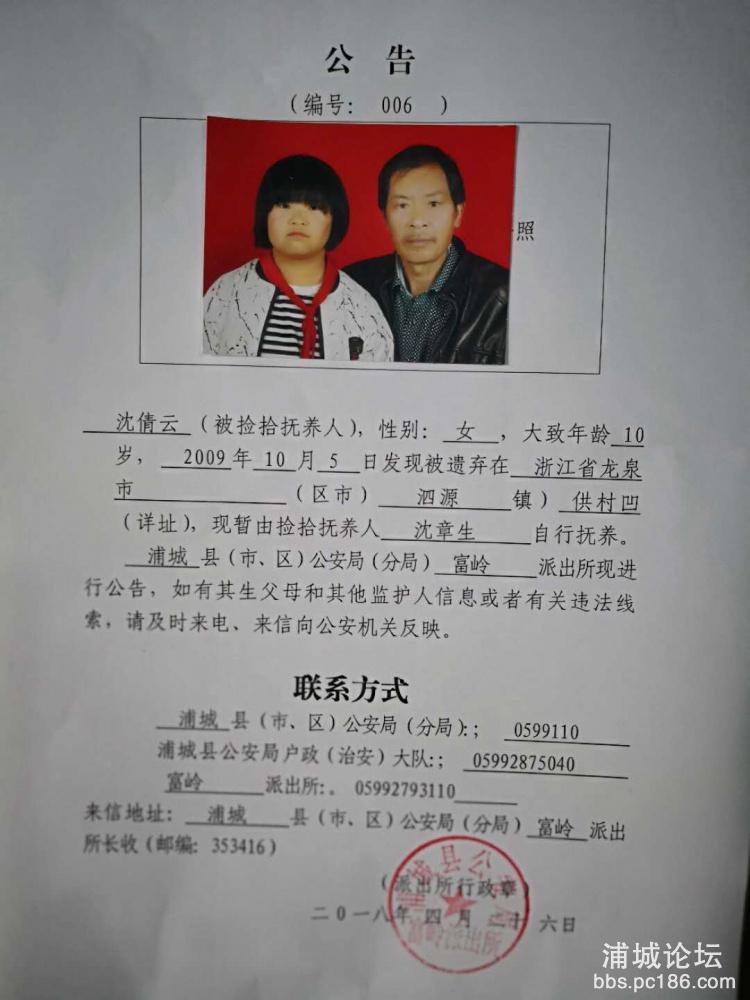 公 告
（编号： 006 ）
照
沈倩云（被捡拾抚养人），性别： 女 ，大致年龄 10
岁， 2009 年 10 月 5 日发现被遗弃在 浙江省龙泉
市 （区市） 泗源 镇） 供村凹
（详址），现暂由捡拾抚养人 沈章生 自行抚养。
浦城 县（市、区）公安局（分局） 富岭 派出所现进
行公告，如有其生父母和其他监护人信息或者有关违法线
索，请及时来电、来信向公安机关反映。
联系方式
浦城 县（市、区）公安局（分局）:； 0599110
浦城县公安局户政（治安）大队:； 05992875040
富岭 派出所:。 05992793110
来信地址： 浦城 县（市、区）公安局（分局） 富岭 派出
所长收（邮编：353416）
（派出所行政章）
二〇一八年 四 月 二十六日
浦城县公安局
富岭派出所
浦城论坛
bbs.pc186.com